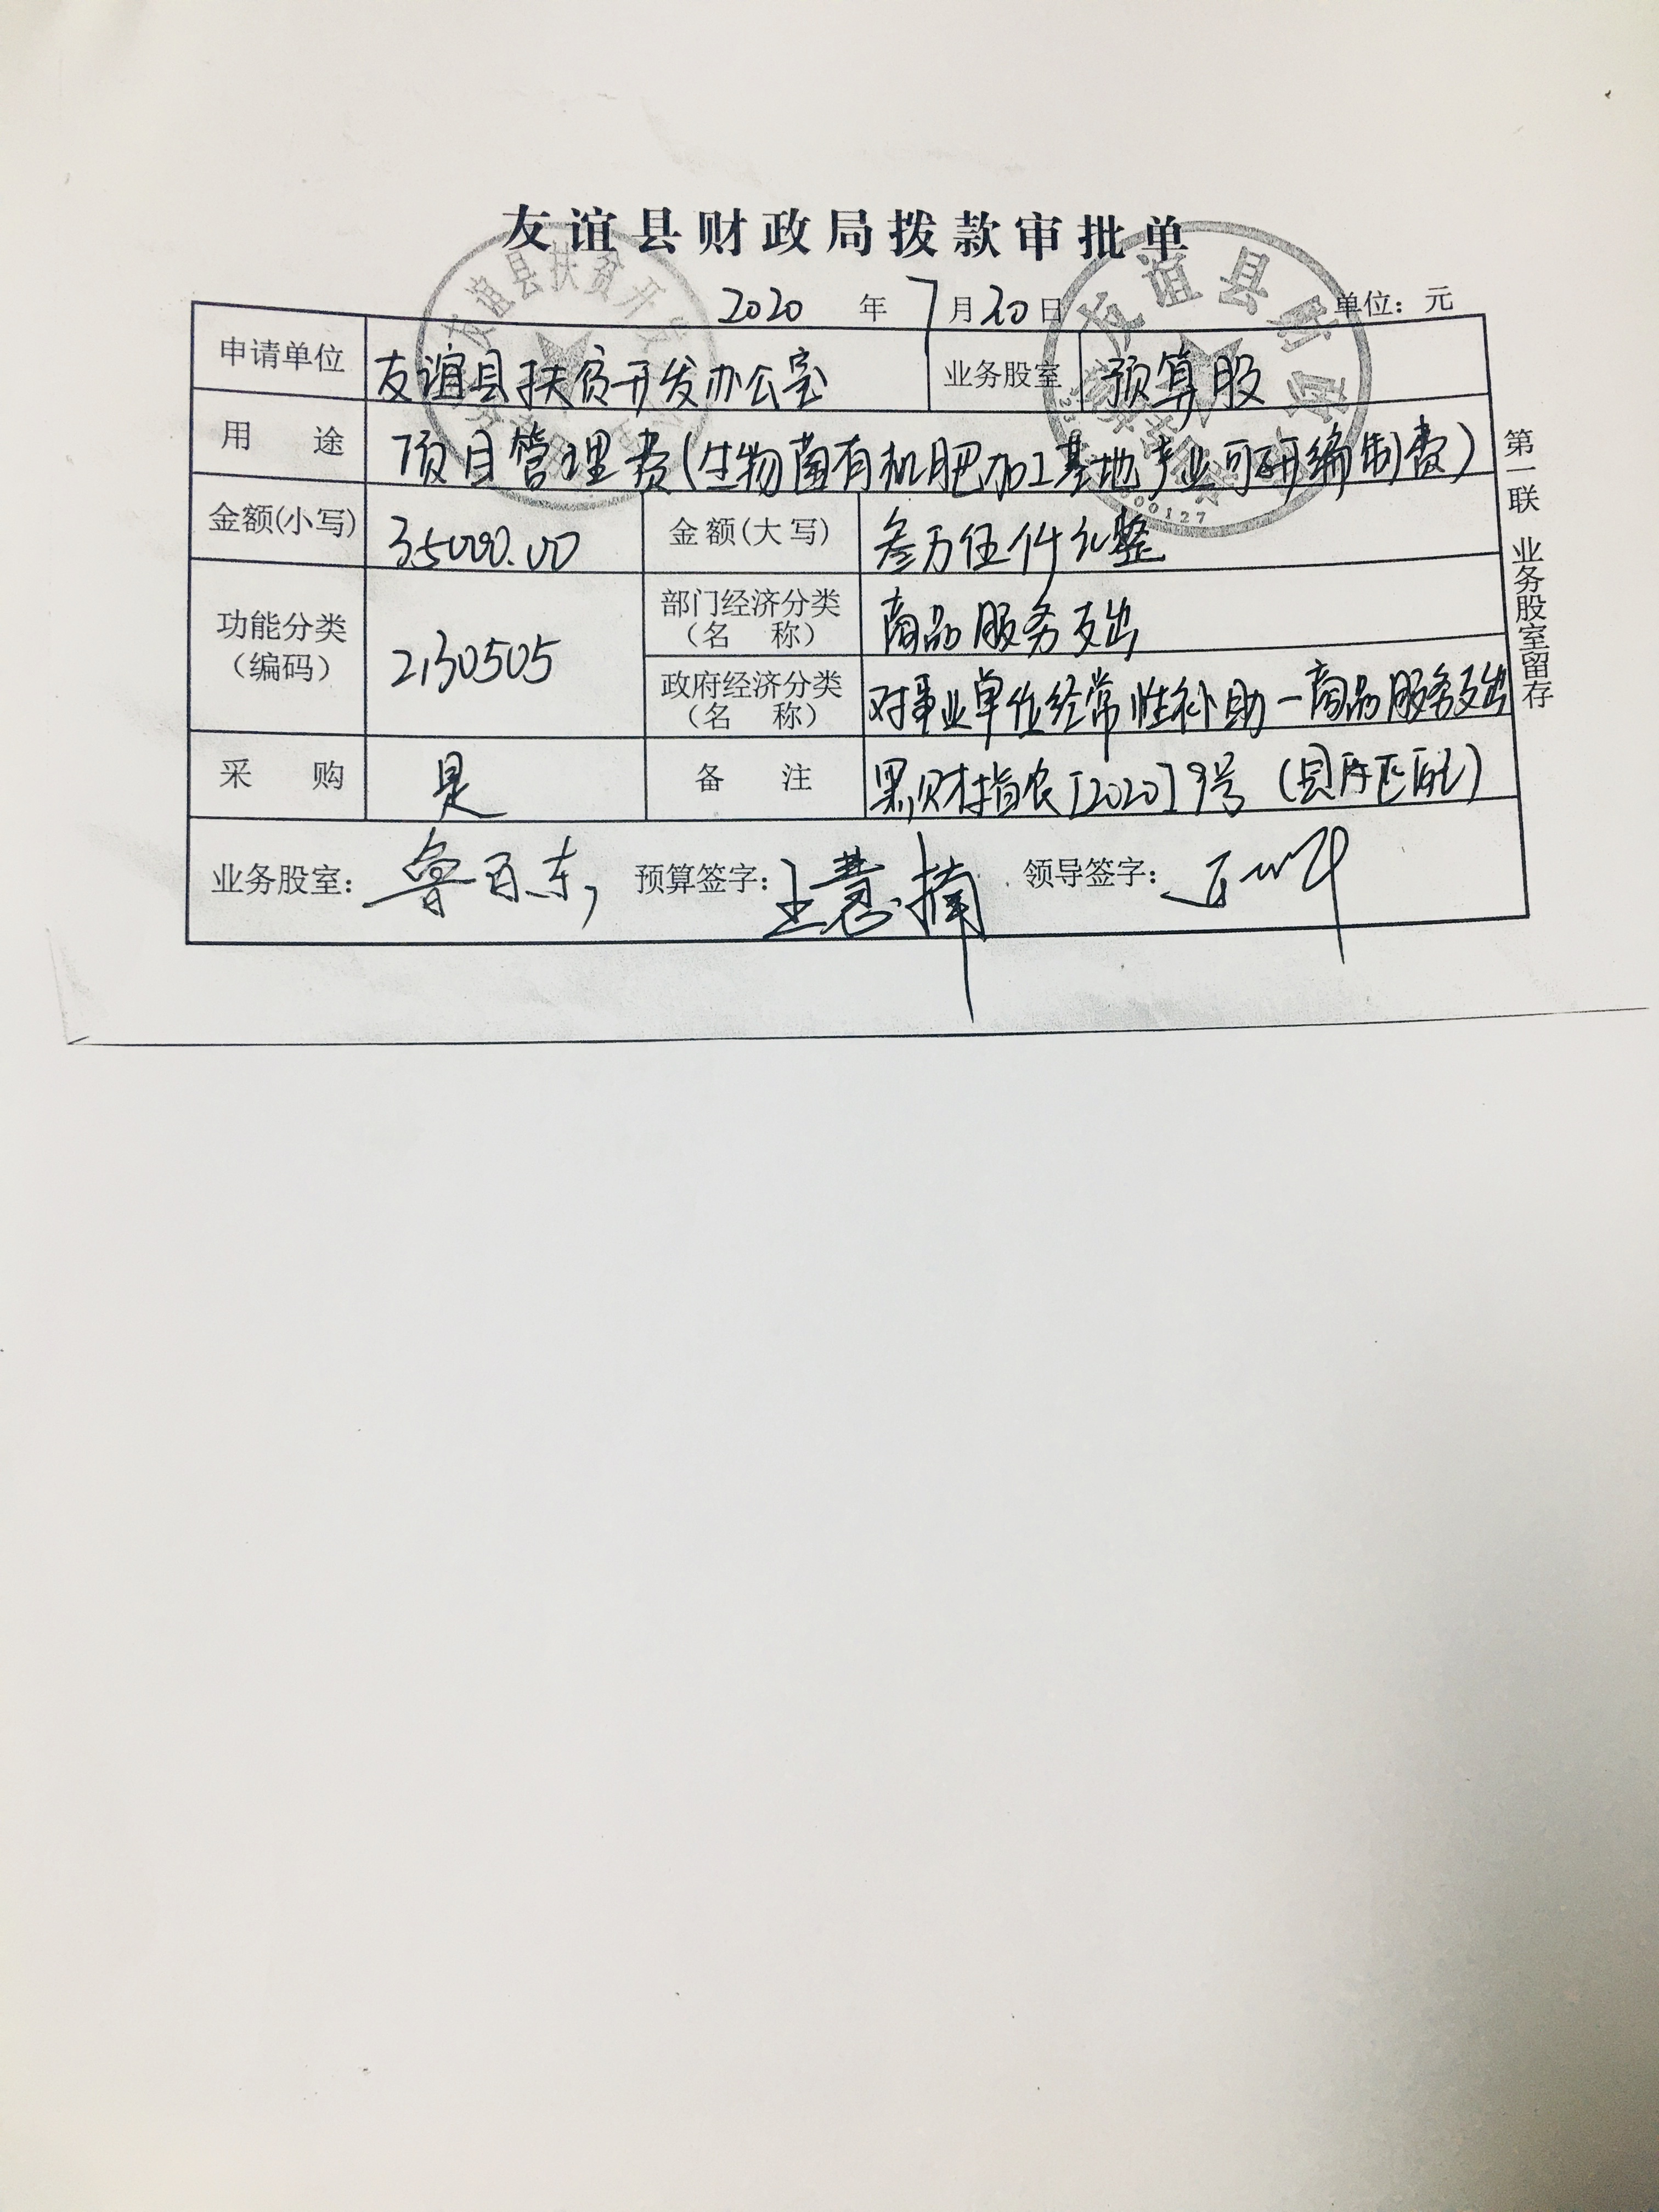 友谊县财政局拨款审批单
2020 年 7 月 20 日 单位：元
申请单位 友谊县扶贫开发办公室 业务股室 预算股
用 途 项目管理费(生物菌有机肥加工基地产业可研编制费)
金额(小写) 35000.00 金额(大写) 叁万伍仟元整
功能分类（编码） 2130505
部门经济分类（名 称） 商品服务支出
政府经济分类（名 称） 对事业单位经常性补助－商品服务支出
采 购 是 备 注 黑财指农[2020]9号 (县序匹配)
业务股室： 鲁百东 预算签字： 王慧楠 领导签字：
第一联 业务股室留存
友谊县扶贫开发
友谊县财政
00127